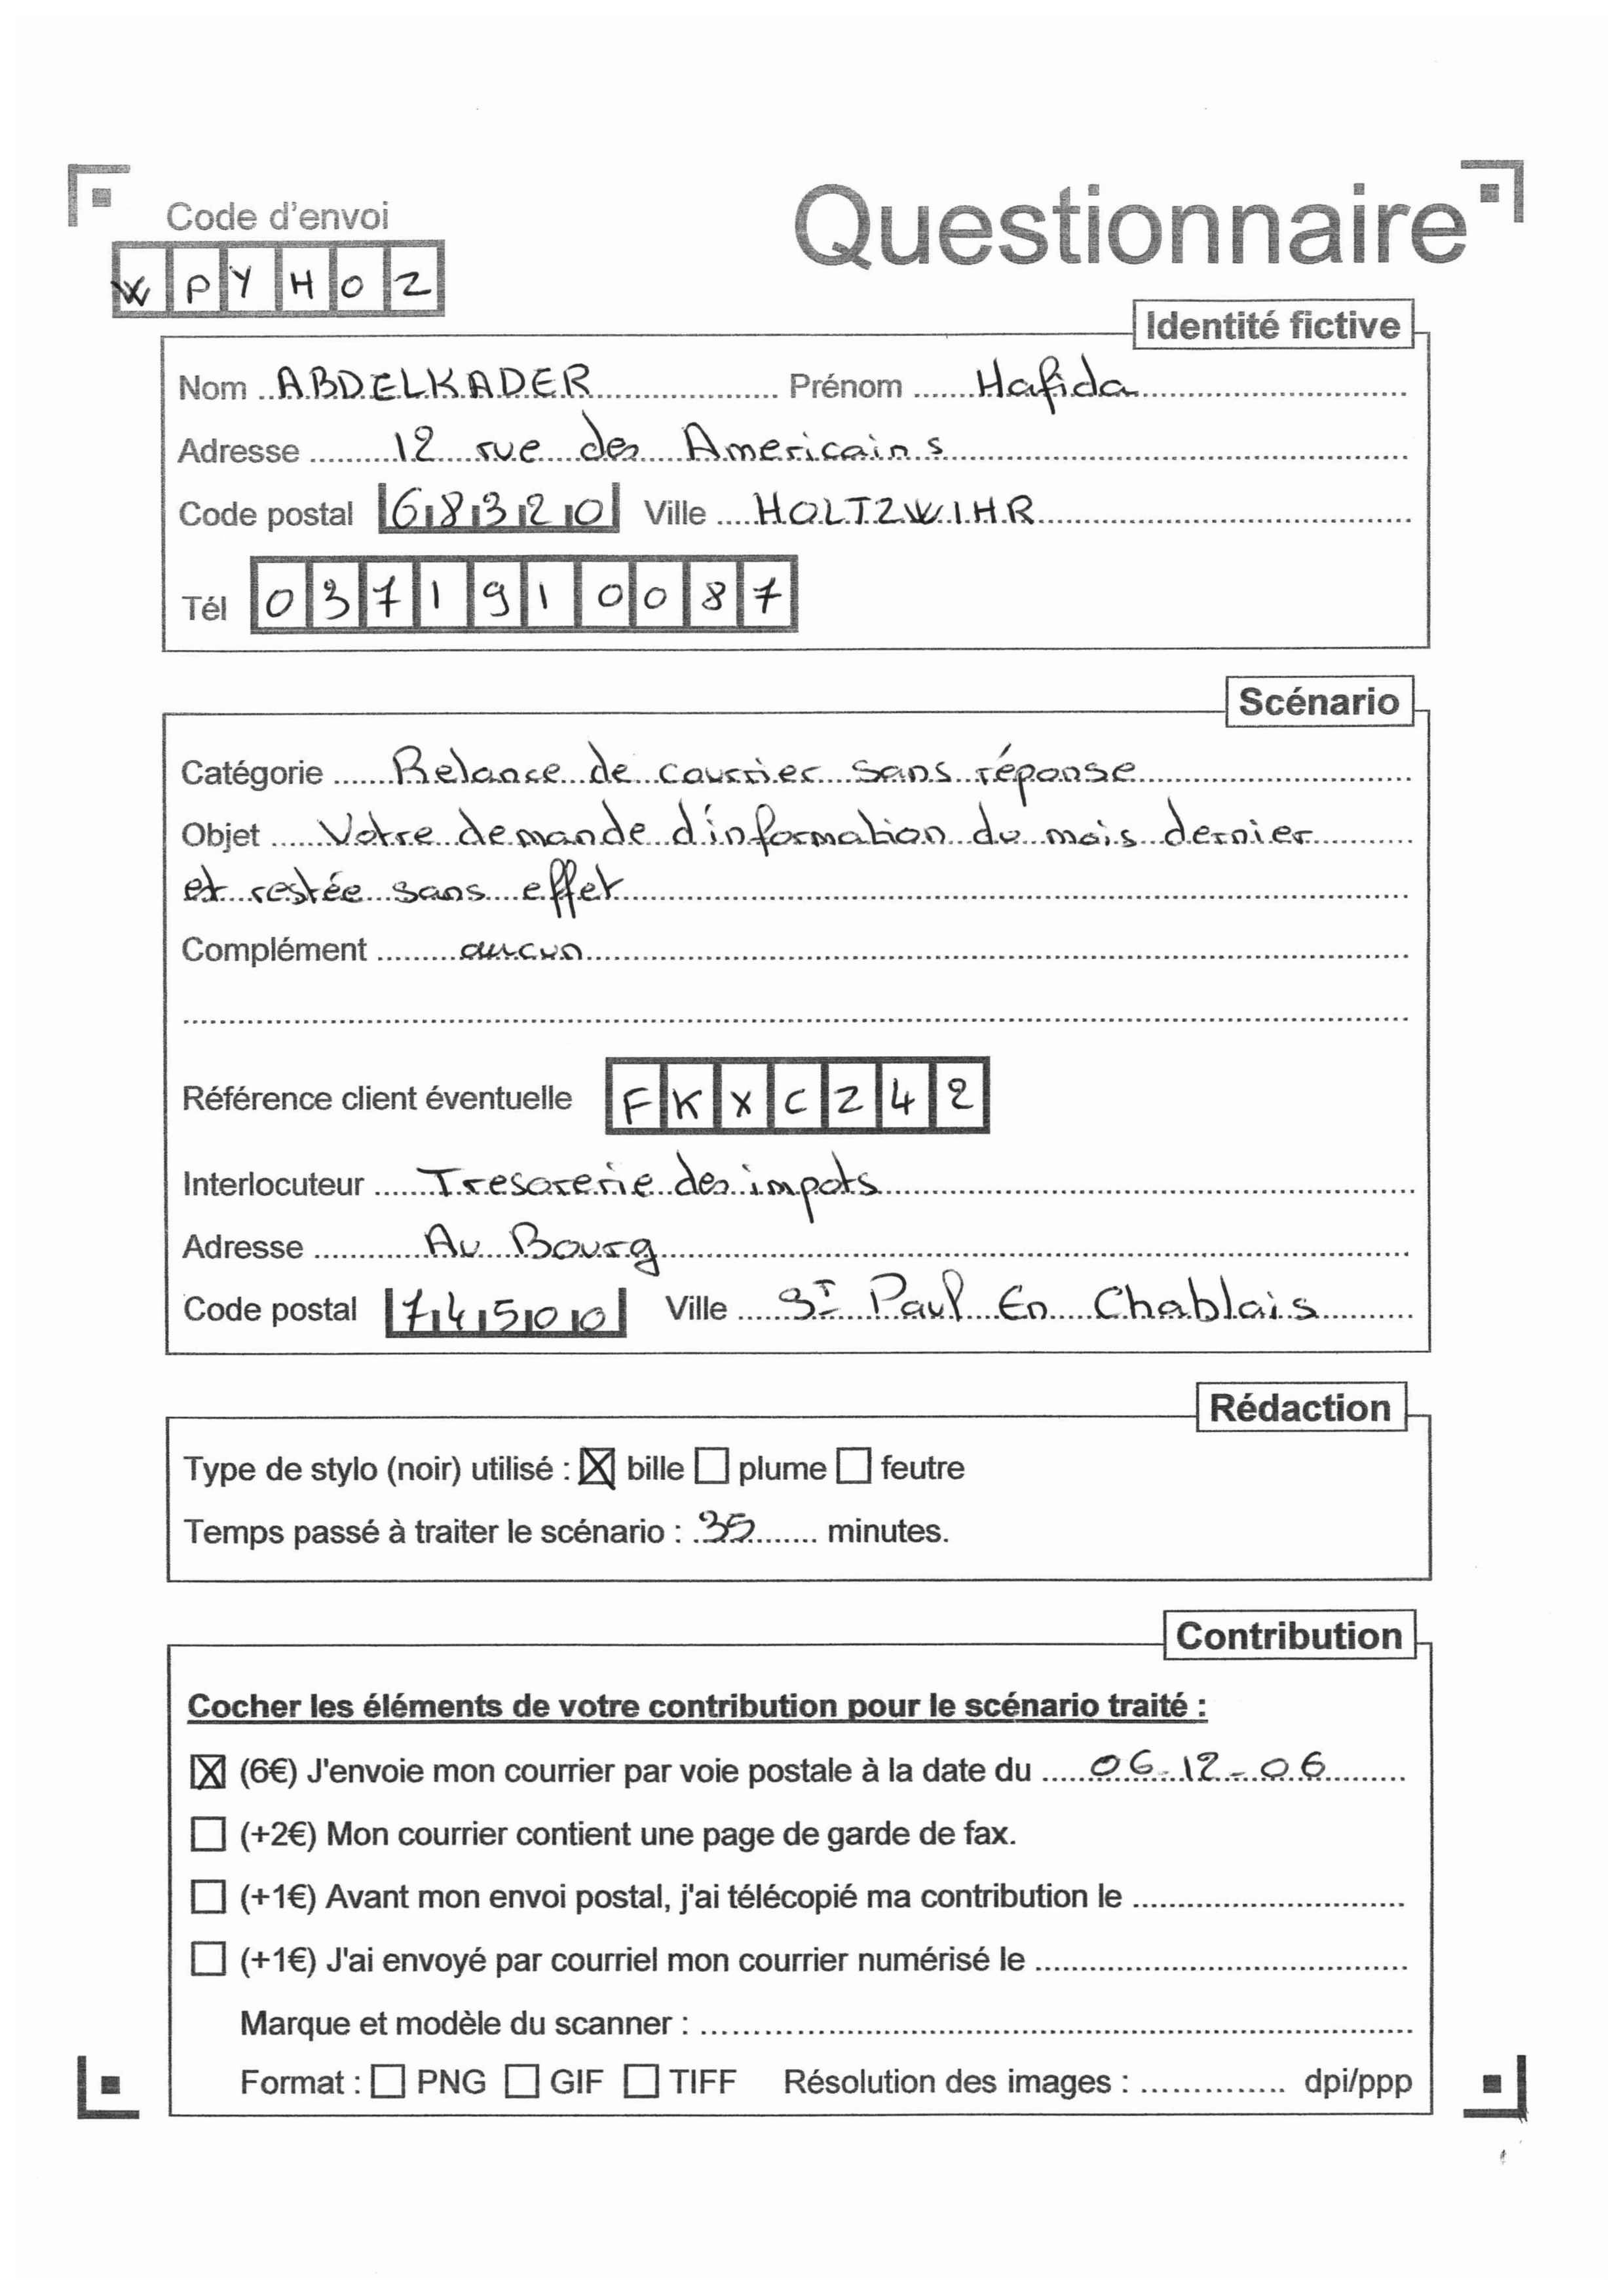 Code d'envoi
Questionnaire
W P Y H 0 2
Identité fictive
Nom ABDELKADER Prénom Hafida
Adresse 12 rue des Americains
Code postal 68320 Ville HOLTZWIHR
Tél 0371910087
Scénario
Catégorie Relance de courrier sans réponse
Objet Votre demande d'information du mois dernier
et restée sans effet
Complément aucun
Référence client éventuelle FKXCZ42
Interlocuteur Tresorerie des impots
Adresse Au Bourg
Code postal 74500 Ville ST Paul En Chablais
Rédaction
Type de stylo (noir) utilisé : ☒ bille ☐ plume ☐ feutre
Temps passé à traiter le scénario : 35 minutes.
Contribution
Cocher les éléments de votre contribution pour le scénario traité :
☒ (6€) J'envoie mon courrier par voie postale à la date du 06-12-06
☐ (+2€) Mon courrier contient une page de garde de fax.
☐ (+1€) Avant mon envoi postal, j'ai télécopié ma contribution le
☐ (+1€) J'ai envoyé par courriel mon courrier numérisé le
Marque et modèle du scanner :
Format : ☐ PNG ☐ GIF ☐ TIFF Résolution des images : dpi/ppp